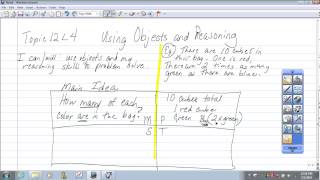 Topic 12 L4 Using Objects and Reasoning
I can/will use objects and my
reasoning skill to problem solve...
Eg There are 10 cubes in
this bag. One is red.
There are 2 times as many
green as there are blue.
Main Idea
How many of each
color are in the bag.
M P
S T
10 cubes total
1 red cube
green (2x green)